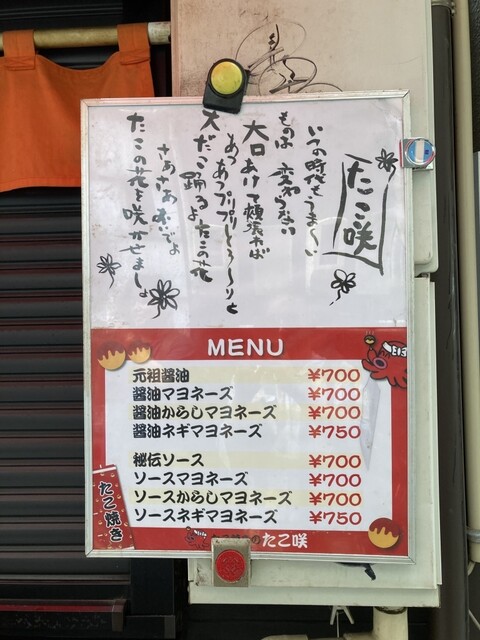 たこ咲
いつの時代もうま〜い
ものは変わらない
大口あけて頬張れば
あつあつプリプリとろ〜りと
大だこ踊るよたこの花
さあさあおいでよ
たこの花を咲かせましょ
MENU
元祖醤油 ¥700
醤油マヨネーズ ¥700
醤油からしマヨネーズ ¥700
醤油ネギマヨネーズ ¥750
秘伝ソース ¥700
ソースマヨネーズ ¥700
ソースからしマヨネーズ ¥700
ソースネギマヨネーズ ¥750
たこ焼き
たこ咲